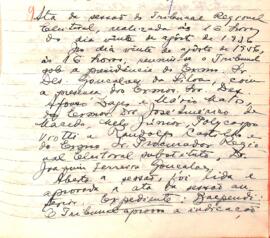 9
Ata da sessão do Tribunal Regional
Eleitoral, realizada às 16 horas
do dia vinte de agosto de 1946
Ao dia vinte de agosto de 1946,
às 16 horas, reuniu-se o Tribunal
sob a presidência do Exmo. Sr.
Des. Gonçalves da Silva, com
a presença dos Exmos. Srs. Des.
Afonso Lages e Mário Matos,
dos Exmos. Drs. José Américo de
Macedo, Melo Júnior,
e
e do Exmo. Sr. Procurador Regio
nal Eleitoral substituto, Dr.
Joaquim Ferreira Gonçalves.
Aberta a sessão, foi lida e
aprovada a ata da sessão an
terior. Expediente:
O Tribunal aprovou a indicação